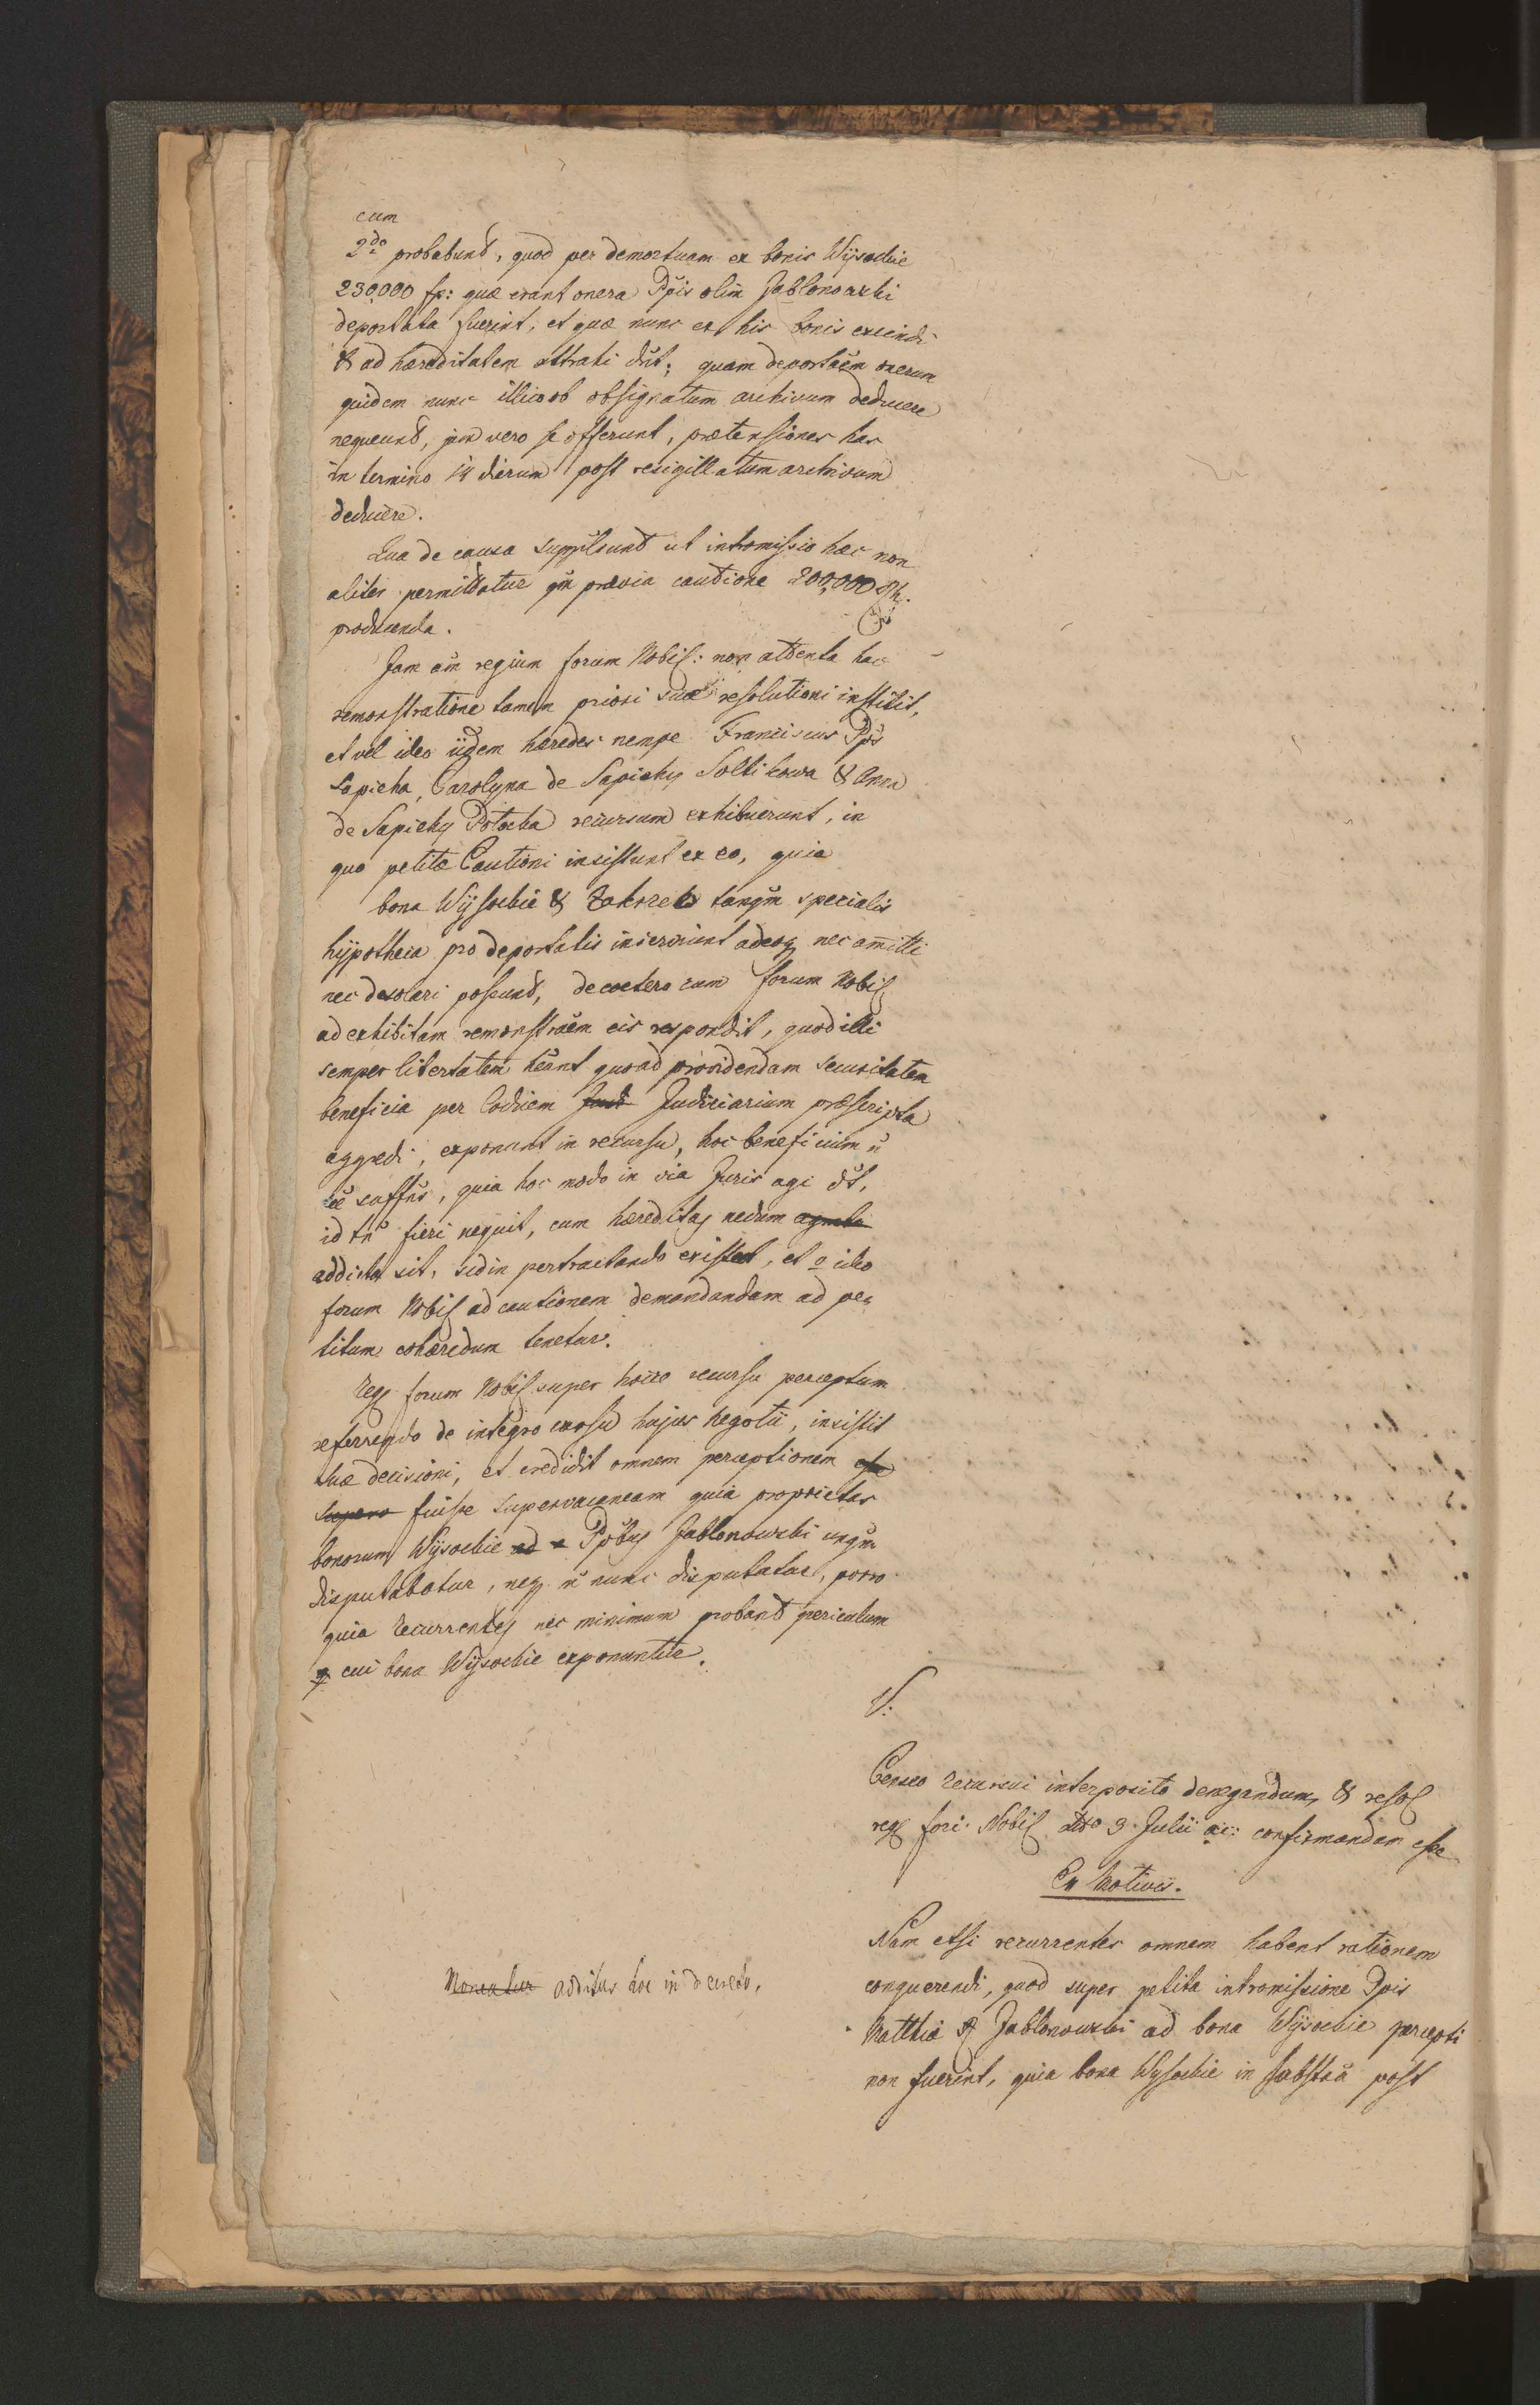 cum
2do probabunt, quod per demortuam ex bonis Wysockie
230,000 fp: quæ erant onera Ppis olim Jablonowski
deportata fuerint, et quæ nunc ex his bonis excindi
& ad hæreditatem attrahi dnt; quam deportaem onerum
quidem nunc illico ob obsignatum archivum deducere
nequeunt, jam vero se offerunt, prætensiones has
in termino 14 dierum post resigillatum archivum
deducere.
Qua de causa supplicant ut intromissio hæc non
aliter permittatur qm prævia cautione 200,000 Rh.
producenda.
Jam am regium forum Nobil: non attenta hac
remonstratione tamen priori suæ resolutioni institit,
et vel ideo iidem hæredes nempe Franciscus Pps
Sapieha, Carolyna de Sapiehy Soltikowa & Anna
de Sapiehy Potocka recursum exhibuerunt, in
quo petitæ Cautioni insistunt ex eo, quia
bona Wysockie & Zakrzew tanqm specialis
hypotheca pro deportatis inserviunt adeoq nec amitti
nec desolari possunt, de coetero cum forum Nobil
ad exhibitam remonstraem eis respondit, quod illi
semper libertatem heant quoad providendam securitatem
beneficia per Codicem Jud Judiciarium præscripta
aggredi, exponunt in recursu, hoc beneficium n
ee suffns, quia hoc modo in via Juris agi dt,
id tn fieri nequit, cum hæreditas nedum
addicta sit, sed in pertractando existat, et ideo
forum Nobil ad cautionem demandandam ad pe
titum cohæredum tenetur.
Reg forum Nobil super hocce recursu perceptum
referrendo de integro cursu hujus negotii, insistit
suæ decisioni, et credidit omnem perceptionem esse
supera fuisse supervacaneam quia proprietas
bonorum Wysockie ad a Ppbus Jablonowski unqm
disputabatur, neq n nunc disputatur, porro
quia recurrentes nec minimum probant periculum
cui bona Wysockie exponuntur.
V:
Censeo recursui interposito denegandum, & resol
reg fori Nobil dtto 3 Julii ai: confirmandam esse
Ex Motivis.
Nam etsi recurrentes omnem habent rationem
conquerendi, quod super petita intromissione Ppis
Matthiæ Jablonowski ad bona Wysockie percepti
non fuerint, quia bona Wysockie in substa post
Moneatur additur hoc in decreto.